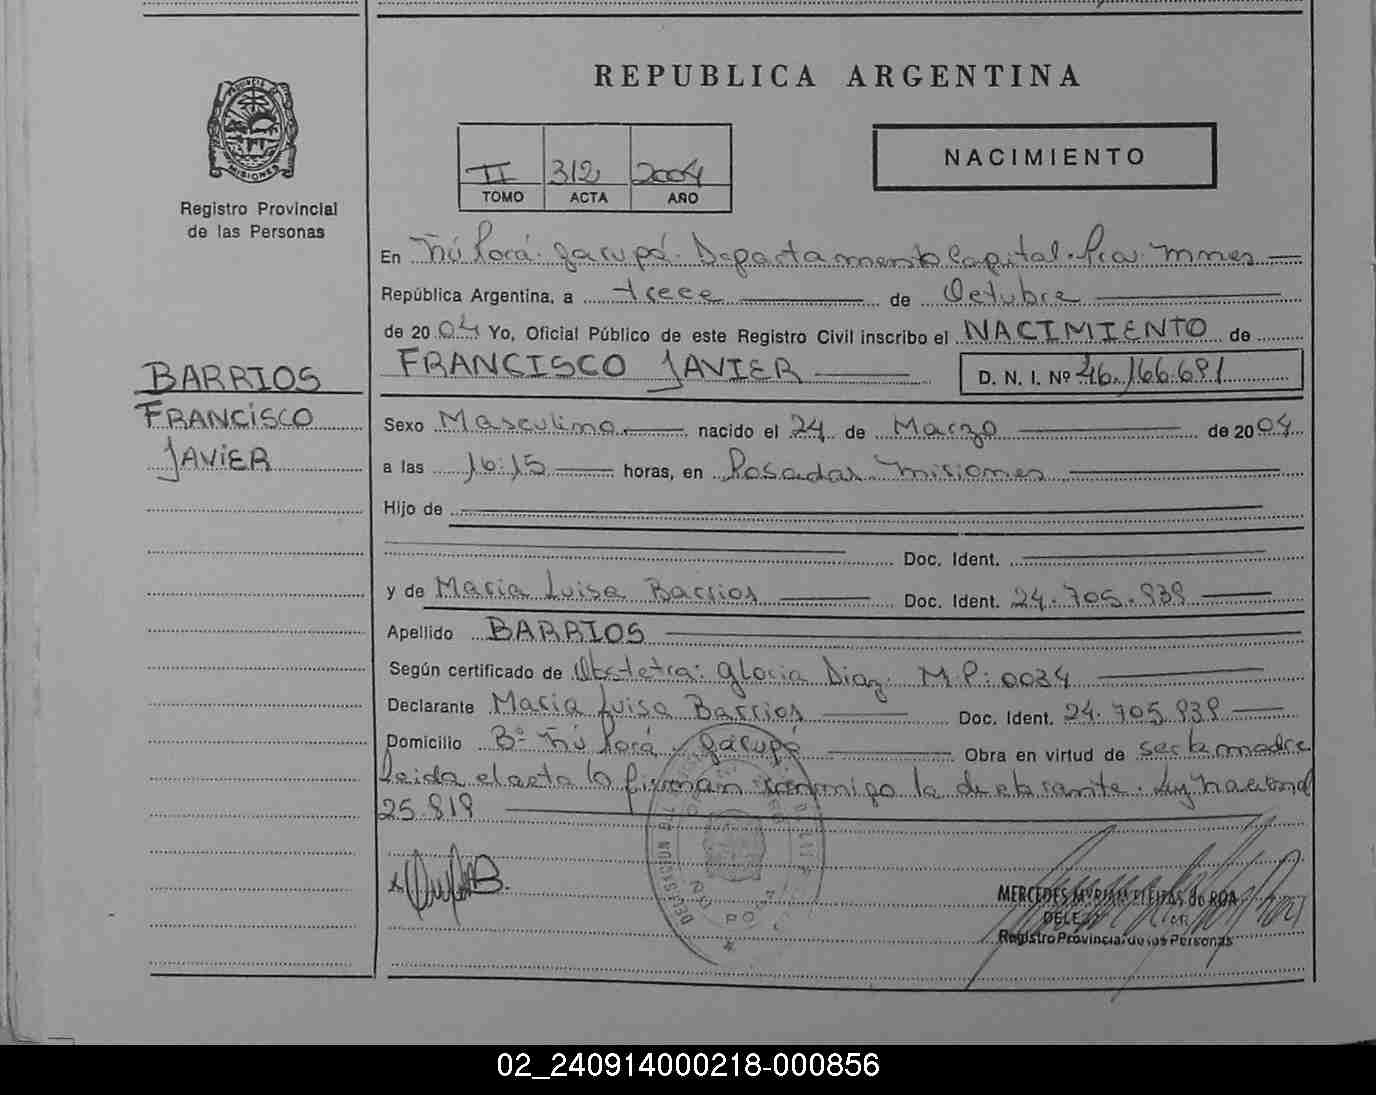 REPUBLICA ARGENTINA
PROVINCIA DE
MISIONES
Registro Provincial
de las Personas
II 312 2004
TOMO ACTA AÑO
NACIMIENTO
En Ñú Porá. Garupá. Departamento Capital. Pcia. Mnes
República Argentina, a trece de Octubre
de 2004 Yo, Oficial Público de este Registro Civil inscribo el NACIMIENTO de
FRANCISCO JAVIER D. N. I. Nº 46.166.691
BARRIOS
FRANCISCO
JAVIER
Sexo Masculino nacido el 24 de Marzo de 2004
a las 16:15 horas, en Posadas Misiones
Hijo de
Doc. Ident.
y de Maria Luisa Barrios Doc. Ident. 24.705.939
Apellido BARRIOS
Según certificado de Obstetra: Gloria Diaz. M.P: 0034
Declarante Maria Luisa Barrios Doc. Ident. 24.705.939
Domicilio Bº Ñú Porá Garupá Obra en virtud de ser la madre
leida el acta la firman conmigo la declarante. Ley Nacional
25.819
MERCEDES MYRIAM FLEITAS de ROA
Registro Provincial de las Personas
02_240914000218-000856